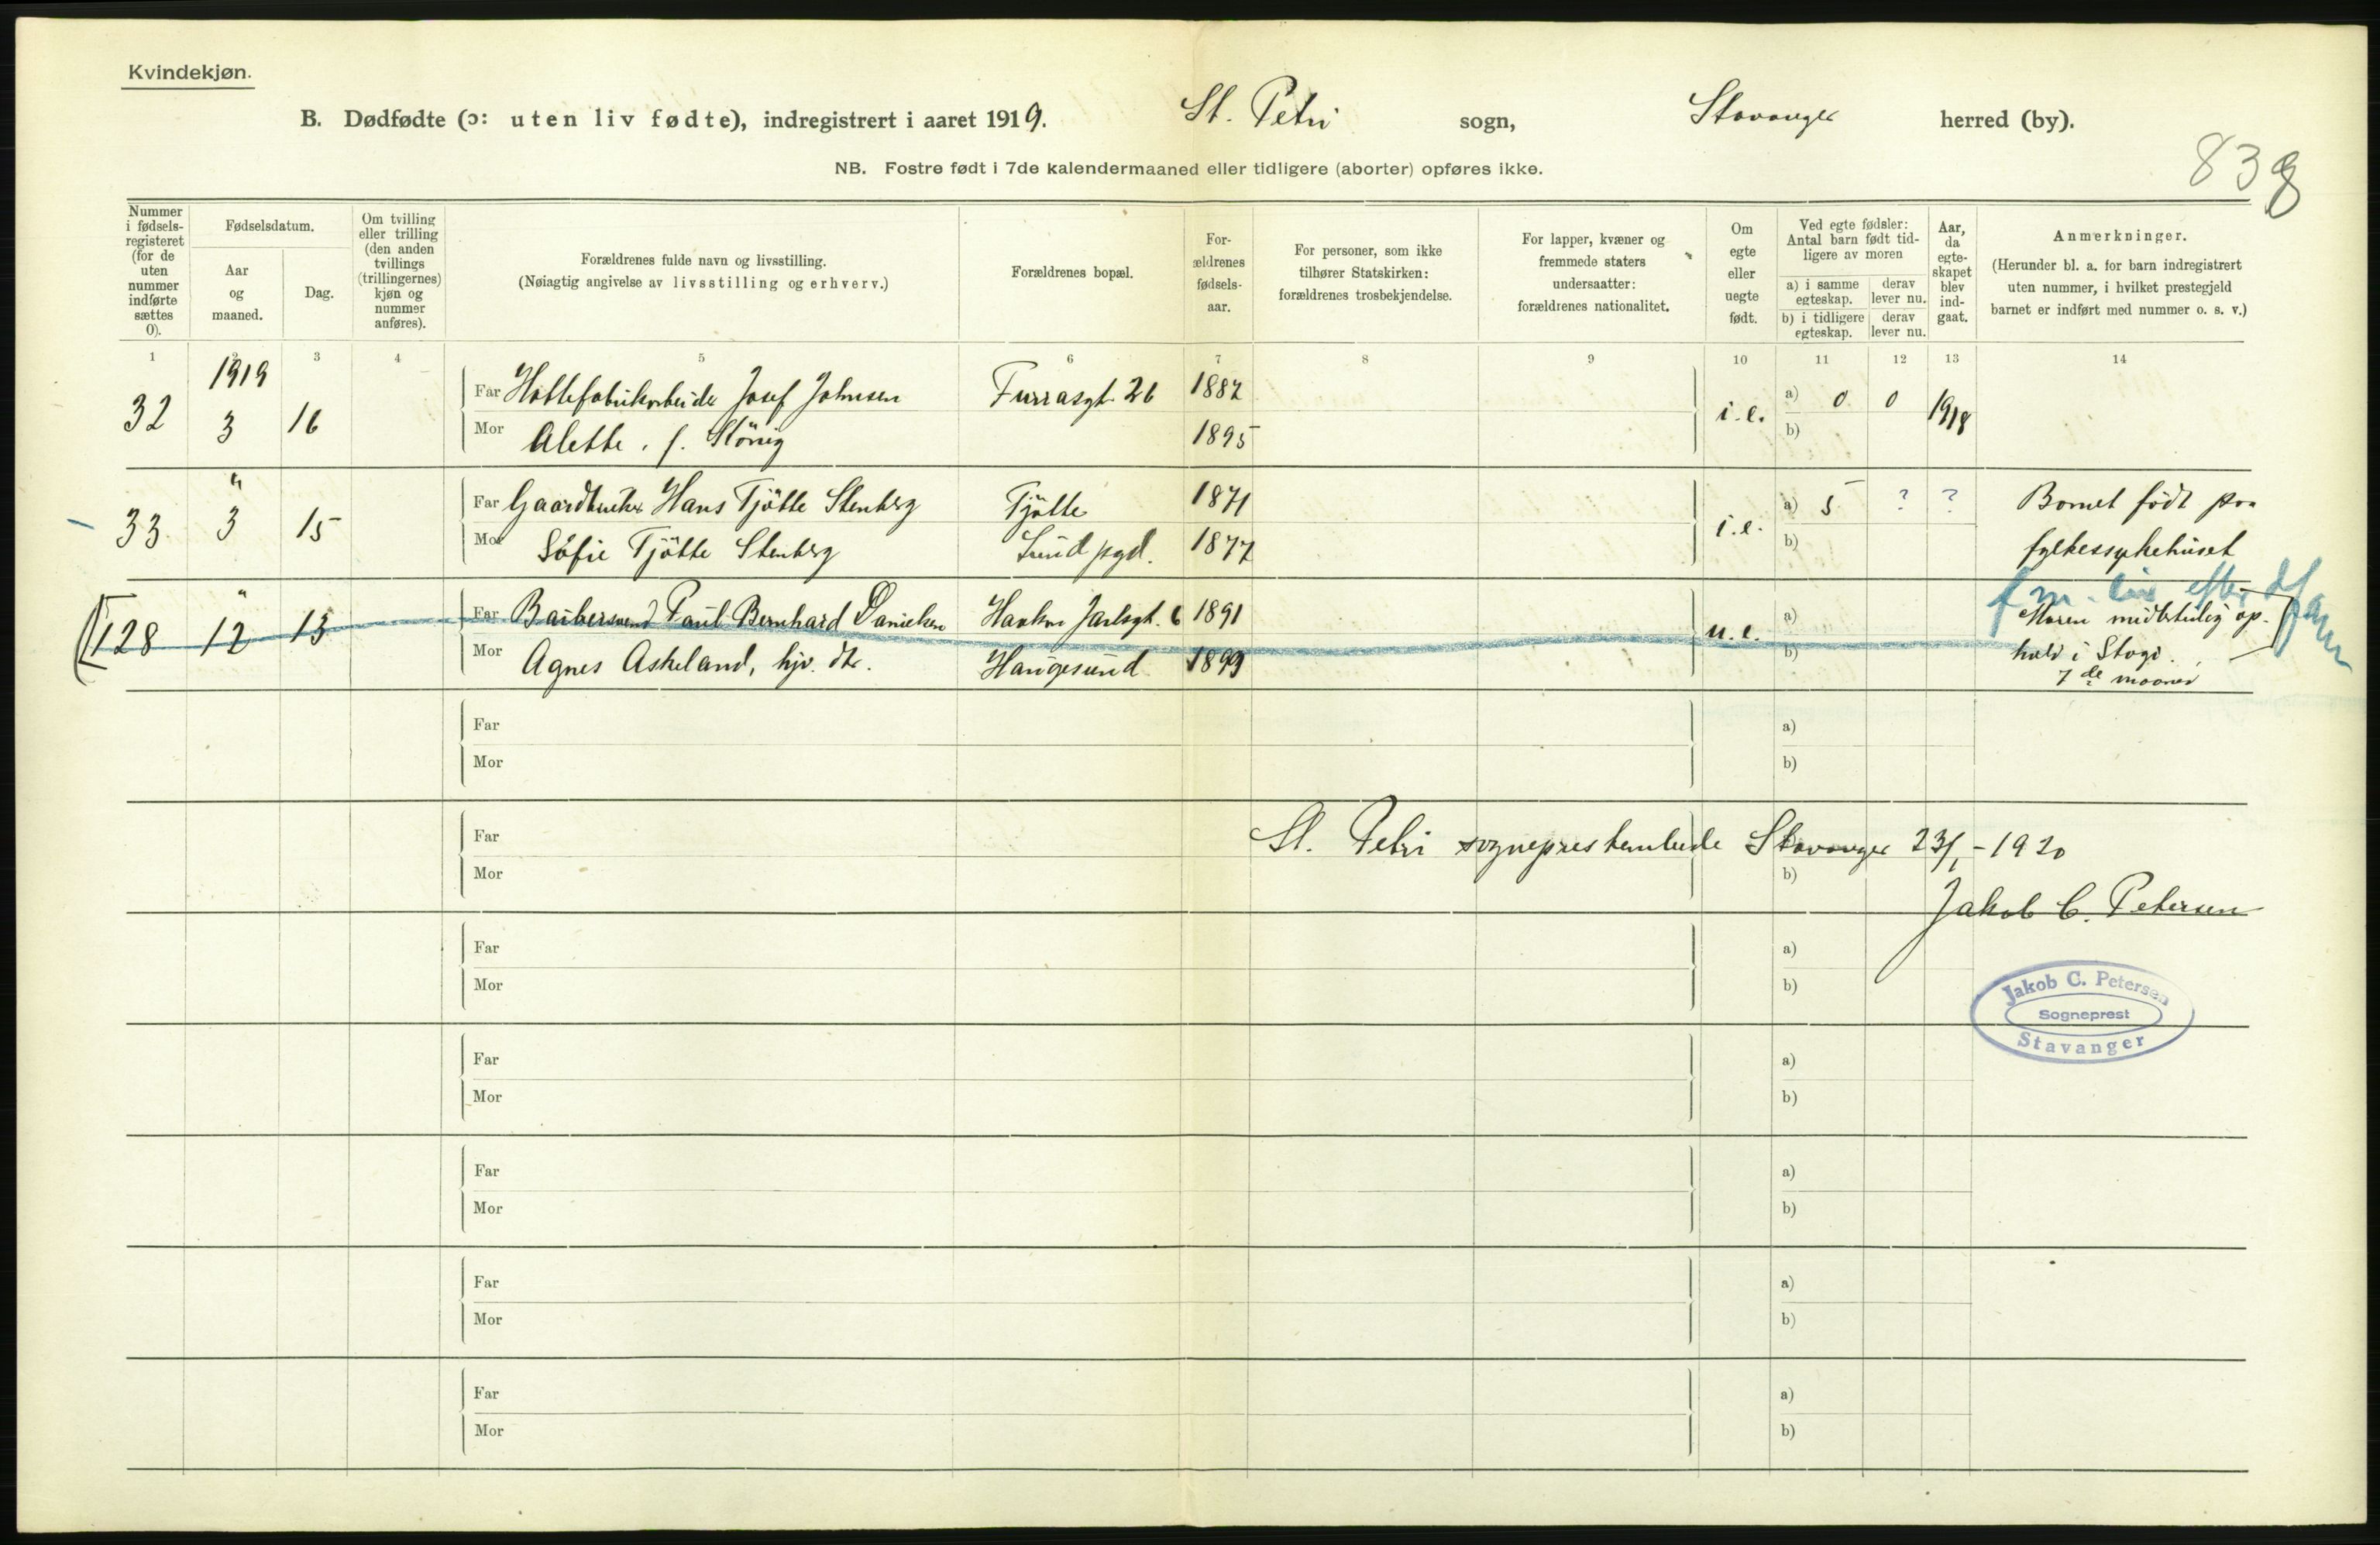 Kvindekjøn.
B. Dødfødte (ɔ: uten liv fødte), indregistrert i aaret 1919. St. Petri sogn, Stavanger herred (by).
838
NB. Fostre født i 7de kalendermaaned eller tidligere (aborter) opføres ikke.
Nummer i fødsels-registeret (for de uten nummer indførte sættes 0).
Fødselsdatum.
Aar og maaned.
Dag.
Om tvilling eller trilling (den anden tvillings (trillingernes) kjøn og nummer anføres).
Forældrenes fulde navn og livsstilling.
(Nøiagtig angivelse av livsstilling og erhverv.)
Forældrenes bopæl.
For-ældrenes fødsels-aar.
For personer, som ikke tilhører Statskirken: forældrenes trosbekjendelse.
For lapper, kvæner og fremmede staters undersaatter: forældrenes nationalitet.
Om egte eller uegte født.
Ved egte fødsler: Antal barn født tid-ligere av moren
a) i samme egteskap.
derav lever nu.
b) i tidligere egteskap.
derav lever nu.
Aar, da egte-skapet blev ind-gaat.
Anmerkninger.
(Herunder bl. a. for barn indregistrert uten nummer, i hvilket prestegjeld barnet er indført med nummer o. s. v.)
1 2 3 4 5 6 7 8 9 10 11 12 13 14
1919
32 3 16 Far Josef Johnsen 26 1882 i.e. a) 0 0 1918
Mor Alette, f. 1895 b)
"
33 3 15 Far Hans Tjötte Stenberg Tjötte 1871 i.e. a) 5 ? ? Barnet født paa
Mor Sofie Tjötte Stenberg Lund pgd. 1877 b) fylkessykehuset
"
128 12 13 Far Barbersvend Paul Bernhard Danielsen Haakon Jarlsgt. 6 1891 u.e. a) Moren midlertidig op-
Mor Agnes Askeland, hjv. dtr. Haugesund 1899 b) hold i Stvgr.
7de maaned
Far a)
Mor b)
Far St. Petri sogneprestembede Stavanger 23/1-1920
Mor b)
Jakob C. Petersen
Far a)
Mor b)
Jakob C. Petersen
Sogneprest
Stavanger
Far a)
Mor b)
Far a)
Mor b)
Far a)
Mor b)
Far a)
Mor b)